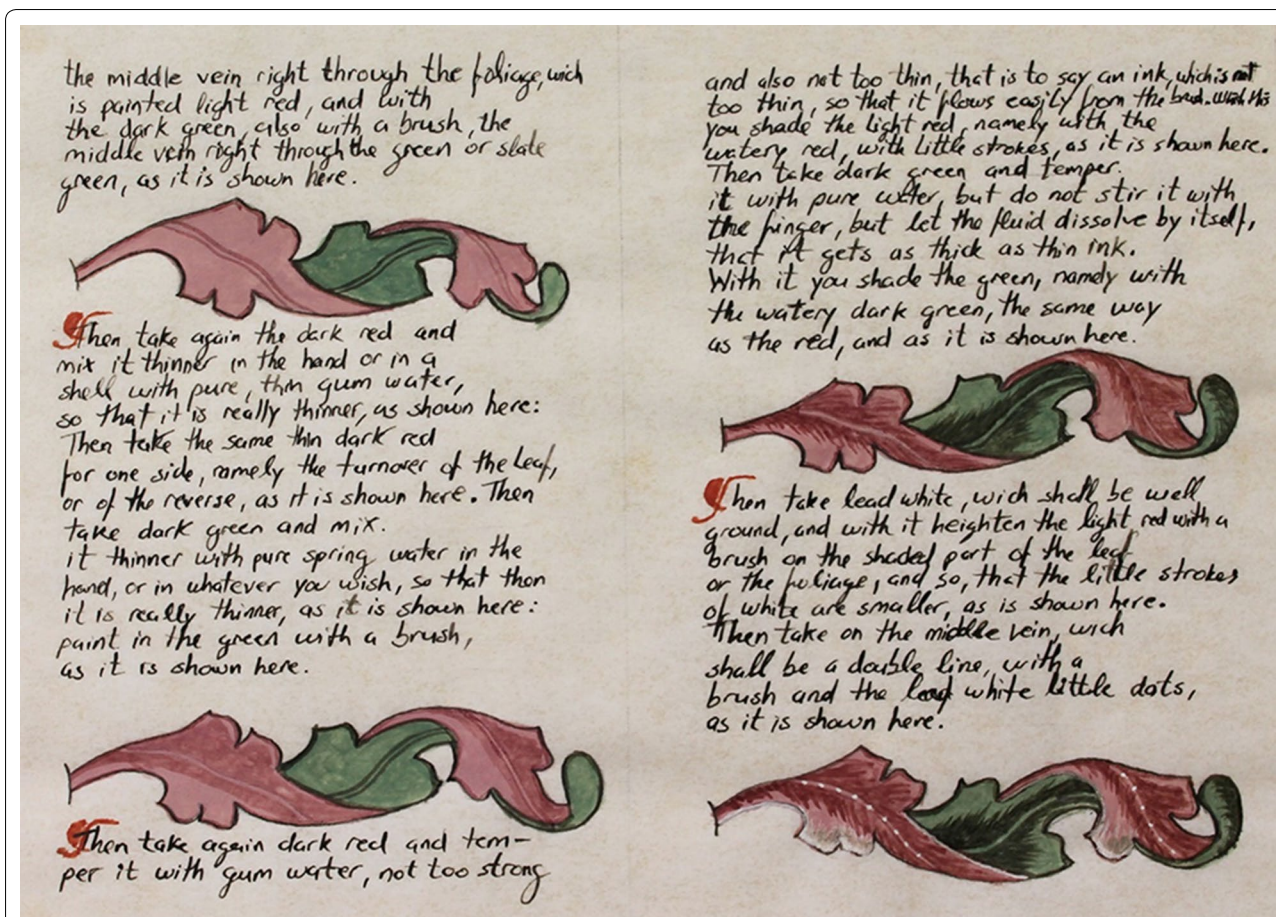 the middle vein right through the foliage, wich
is painted light red, and with
the dark green, also with a brush, the
middle vein right through the green or slate
green, as it is shown here.
Then take again the dark red and
mix it thinner in the hand or in a
shell with pure, thin gum water,
so that it is really thinner, as shown here:
Then take the same thin dark red
for one side, namely the turnover of the leaf,
or of the reverse, as it is shown here. Then
take dark green and mix.
it thinner with pure spring water in the
hand, or in whatever you wish, so that then
it is really thinner, as it is shown here:
paint in the green with a brush,
as it is shown here.
Then take again dark red and tem-
per it with gum water, not too strong
and also not too thin, that is to say an ink, which is not
too thin, so that it flows easily from the brush. With this
you shade the light red, namely with the
watery red, with little strokes, as it is shown here.
Then take dark green and temper.
it with pure water, but do not stir it with
the finger, but let the fluid dissolve by itself,
that it gets as thick as thin ink.
With it you shade the green, namely with
the watery dark green, the same way
as the red, and as it is shown here.
Then take lead white, wich shall be well
ground, and with it heighten the light red with a
brush on the shaded part of the leaf
or the foliage, and so, that the little strokes
of white are smaller, as is shown here.
Then take on the middle vein, wich
shall be a double line, with a
brush and the lead white little dots,
as it is shown here.